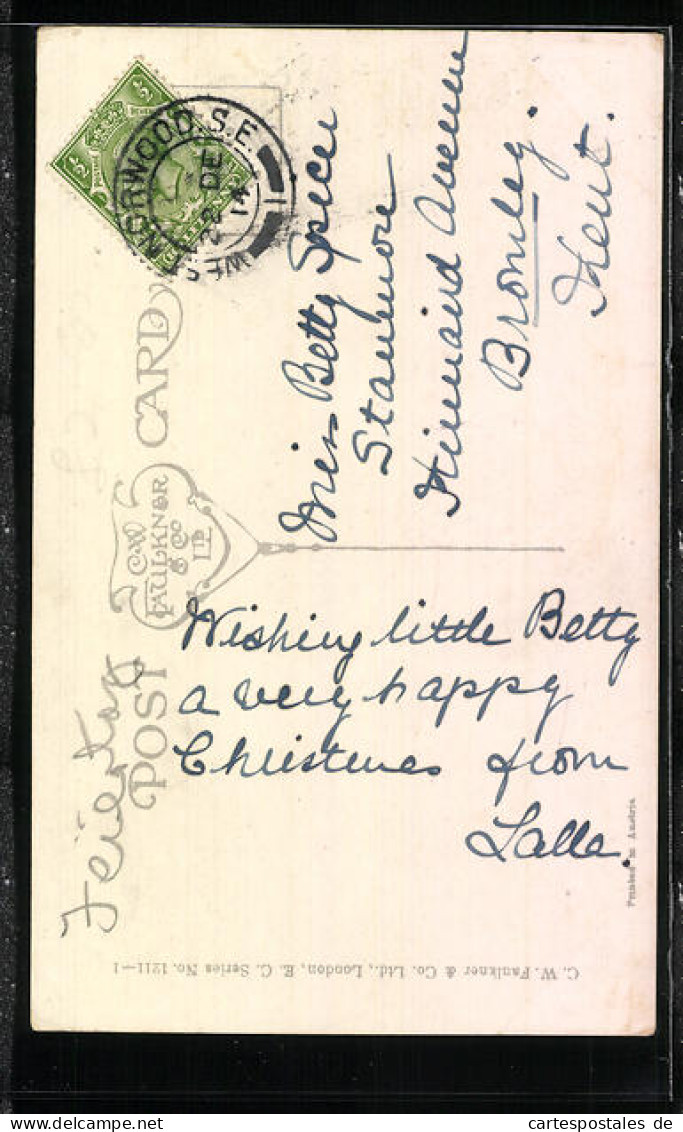 POST CARD
C.W. FAULKNER & Co LTD
WEST NORWOOD. S.E.
22 DE
14
1
½ ½
Wishing little Betty
a very happy
Christmas from
Lalla.
Miss Betty Spicer
Stanmore
Kinnaird Avenue
Bromley.
Kent.
Feiertag
Printed in Austria
C. W. Faulkner & Co. Ltd., London, E. C. Series No. 1211—1
cartespostales de